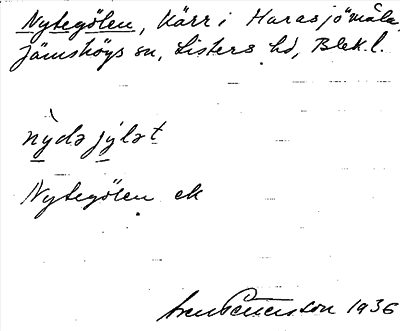 Nytegölen, Kärr i Harasjömåla,
Jämshögs sn, Listers hd, Blek. l.
nydə jylət
Nytegölen ek
Sven Benson 1936